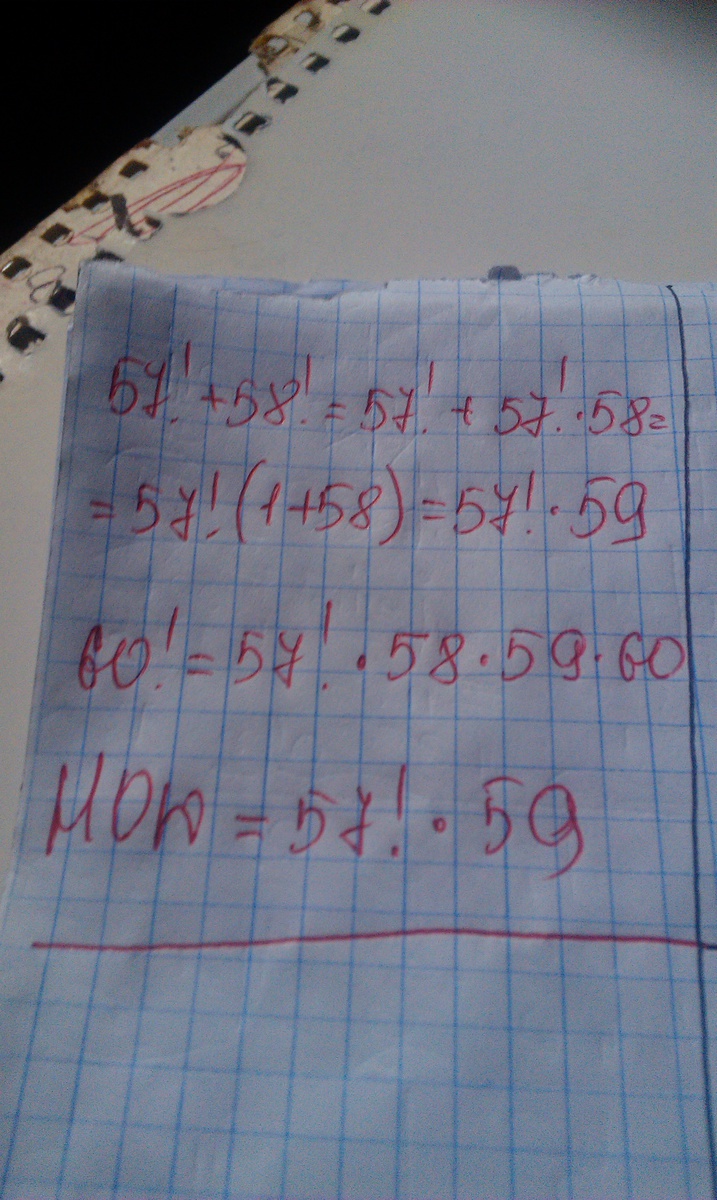 57! + 58! = 57! + 57! · 58 =
= 57! (1 + 58) = 57! · 59
60! = 57! · 58 · 59 · 60
НОД = 57! · 59